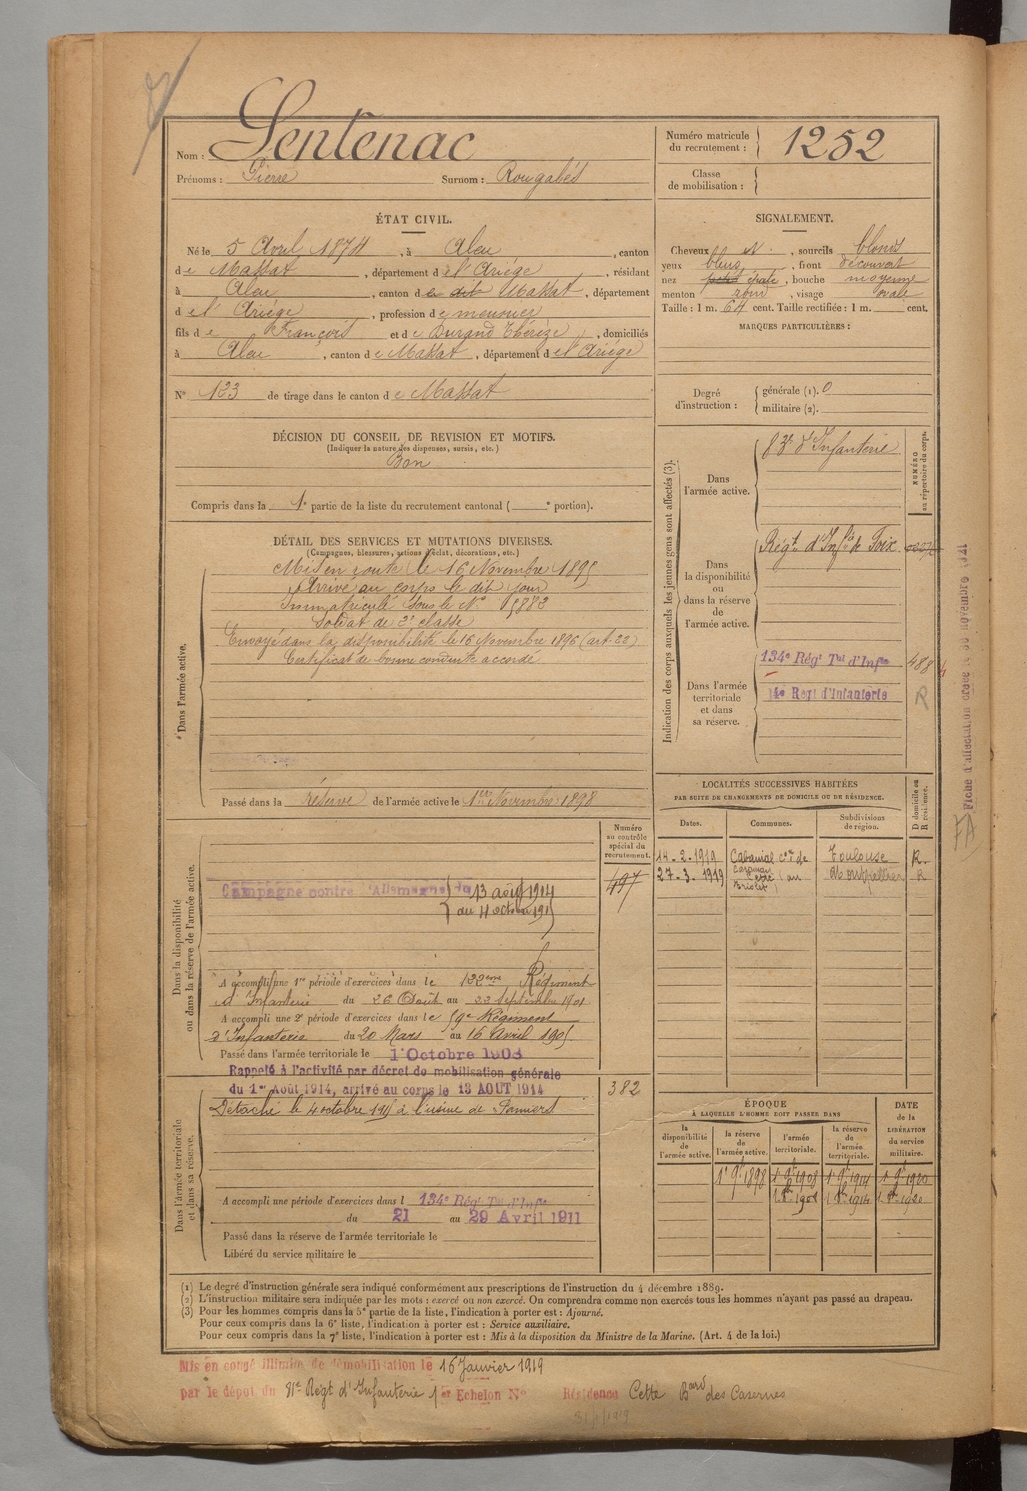 Nom : Sentenac
Prénoms : Pierre Surnom : Rougalés
Numéro matricule du recrutement : 1252
Classe de mobilisation :
ÉTAT CIVIL.
Né le 5 Avril 1874, à Aleu, canton
de Massat, département de l'Ariége, résidant
à Aleu, canton de dit Massat, département
de l'Ariége, profession de meunier
fils de François et de Durand Thérèze, domiciliés
à Aleu, canton de Massat, département de l'Ariége
N° 123 de tirage dans le canton de Massat
SIGNALEMENT.
Cheveux et, sourcils blonds
yeux bleus, front découvert
nez épaté, bouche moyenne
menton rond, visage ovale
Taille : 1 m. 64 cent. Taille rectifiée : 1 m. cent.
MARQUES PARTICULIÈRES :
Degré d'instruction : générale (1). 0
militaire (2).
DÉCISION DU CONSEIL DE REVISION ET MOTIFS.
(Indiquer la nature des dispenses, sursis, etc.)
Bon
Compris dans la 1e partie de la liste du recrutement cantonal ( e portion).
DÉTAIL DES SERVICES ET MUTATIONS DIVERSES.
(Campagnes, blessures, actions d'éclat, décorations, etc.)
Dans l'armée active.
Mis en route le 16 Novembre 1895
Arrivé au corps le dit jour
Immatriculé sous le N°
Soldat de 2e classe
Envoyé dans la disponibilité le 16 Novembre 1896 (art. 22)
Certificat de bonne conduite accordé
Passé dans la réserve de l'armée active le 1er Novembre 1898
Indication des corps auxquels les jeunes gens sont affectés (3).
NUMÉRO au répertoire du corps.
Dans l'armée active.
83e d'Infanterie
Dans la disponibilité ou dans la réserve de l'armée active.
Régt d'Infie de Foix
Dans l'armée territoriale et dans sa réserve.
134e Régt Tal d'Infie 488
14e Régt d'Infanterie R
Fiche d'affectation
FA
LOCALITÉS SUCCESSIVES HABITÉES
PAR SUITE DE CHANGEMENTS DE DOMICILE OU DE RÉSIDENCE.
Dates. Communes. Subdivisions de région. D domicile ou R résidence.
14-2-1919 Cabanial con de Toulouse R.
27-3-1919 Cette Montpellier R
Dans la disponibilité ou dans la réserve de l'armée active.
Numéro au contrôle spécial du recrutement.
497
Campagne contre l'Allemagne du 13 août 1914
au 4 octobre 1915
A accompli une 1re période d'exercices dans le 122ème Régiment
d'Infanterie du 26 Août au 22 Septembre 1901
A accompli une 2e période d'exercices dans le 59e Régiment
d'Infanterie du 20 Mars au 16 Avril 1905
Passé dans l'armée territoriale le 1er Octobre 1908
Rappelé à l'activité par décret de mobilisation générale
du 1er Août 1914, arrivé au corps le 13 AOUT 1914
382
Dans l'armée territoriale et dans sa réserve.
Détaché le 4 octobre 1915 à l'usine de Pamiers
A accompli une période d'exercices dans l 134e Régt Tal d'Infie
du 21 au 29 Avril 1911
Passé dans la réserve de l'armée territoriale le
Libéré du service militaire le
ÉPOQUE
À LAQUELLE L'HOMME DOIT PASSER DANS
DATE de la LIBÉRATION du service militaire.
la disponibilité de l'armée active. la réserve de l'armée active. l'armée territoriale. la réserve de l'armée territoriale.
1er 9bre 1898 1er 9bre 1908 1er 9bre 1914 1er 9bre 1920
1er 8bre 1908 1er 8bre 1914 1er 8bre 1920
(1) Le degré d'instruction générale sera indiqué conformément aux prescriptions de l'instruction du 4 décembre 1889.
(2) L'instruction militaire sera indiquée par les mots : exercé ou non exercé. On comprendra comme non exercés tous les hommes n'ayant pas passé au drapeau.
(3) Pour les hommes compris dans la 5e partie de la liste, l'indication à porter est : Ajourné.
Pour ceux compris dans la 6e liste, l'indication à porter est : Service auxiliaire.
Pour ceux compris dans la 7e liste, l'indication à porter est : Mis à la disposition du Ministre de la Marine. (Art. 4 de la loi.)
Mis en congé illimité de démobilisation le 16 Janvier 1919
par le dépôt du 81e Régt d'Infanterie 1er Echelon N° Résidence Cette Bard des Casernes